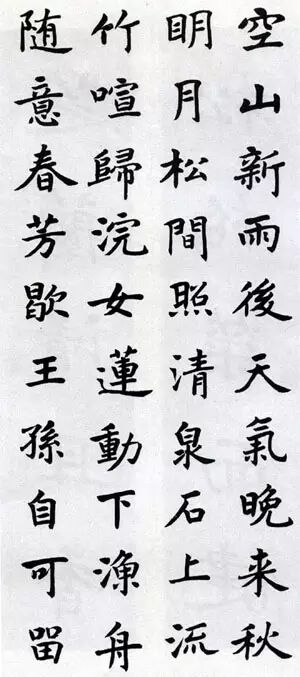 空山新雨後天氣晚来秋
明月松間照清泉石上流
竹喧歸浣女蓮動下漁舟
随意春芳歇王孫自可留